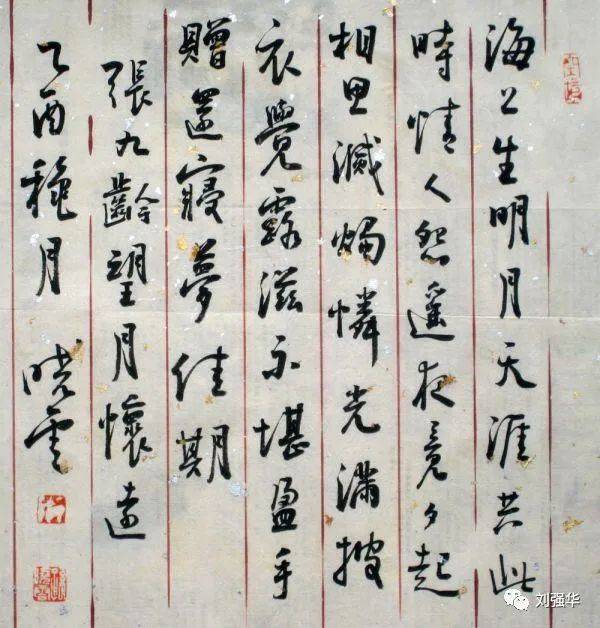 海上生明月天涯共此
時情人怨遙夜竟夕起
相思滅燭憐光滿披
衣覺露滋不堪盈手
贈還寢夢佳期
張九齡望月懷遠
乙酉穐月 曉雲
刘强华